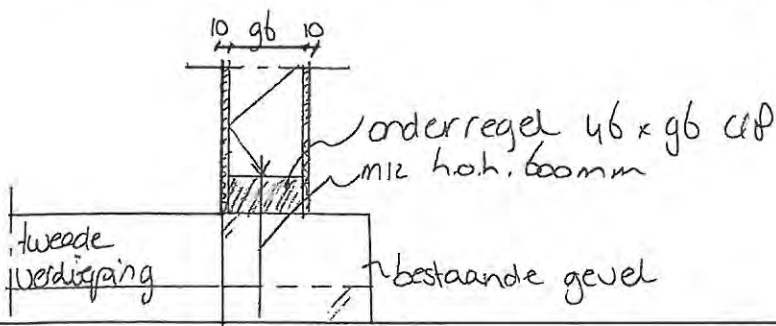 10 96 10
onderregel 46 x 96 C18
M12 h.o.h. 600mm
tweede
verdieping
bestaande gevel